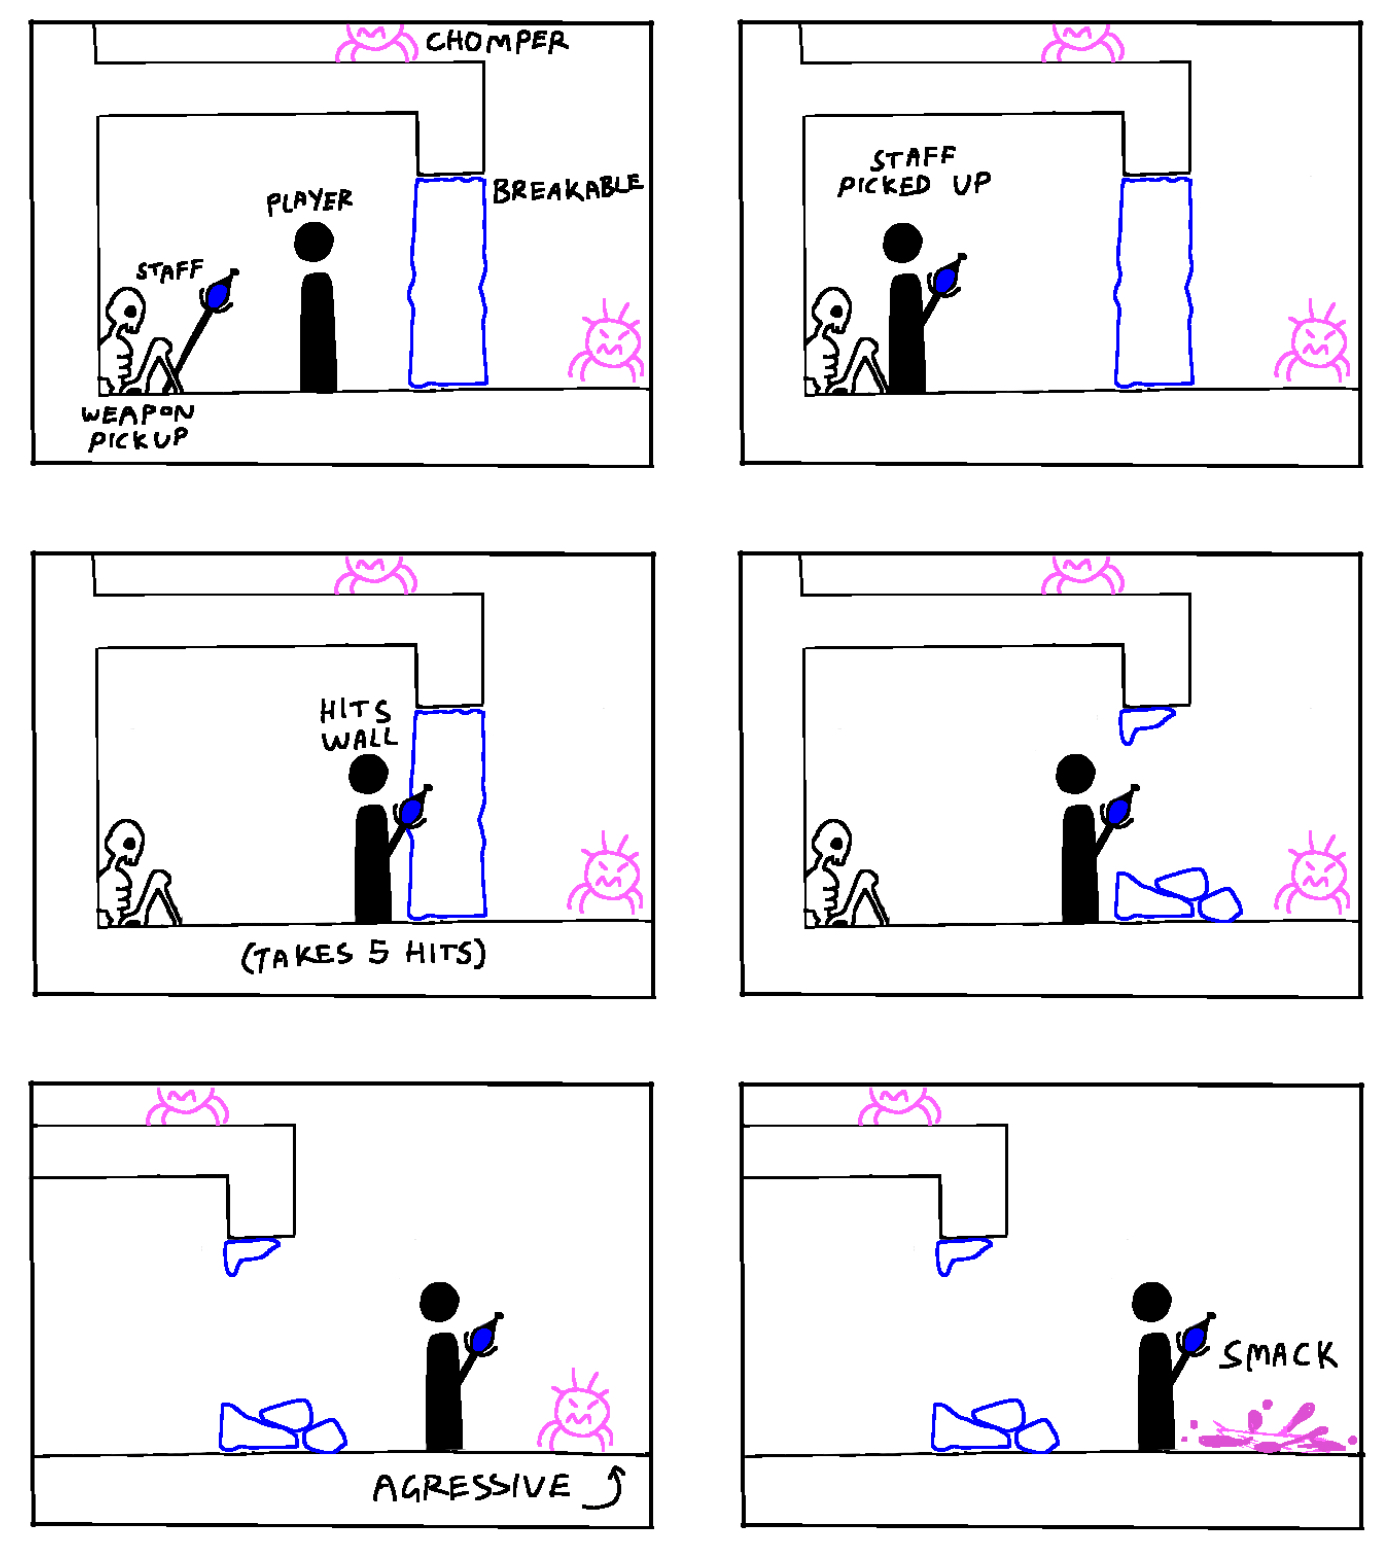 CHOMPER
PLAYER
BREAKABLE
STAFF
WEAPON
PICKUP
STAFF
PICKED UP
HITS
WALL
(TAKES 5 HITS)
AGRESSIVE
SMACK